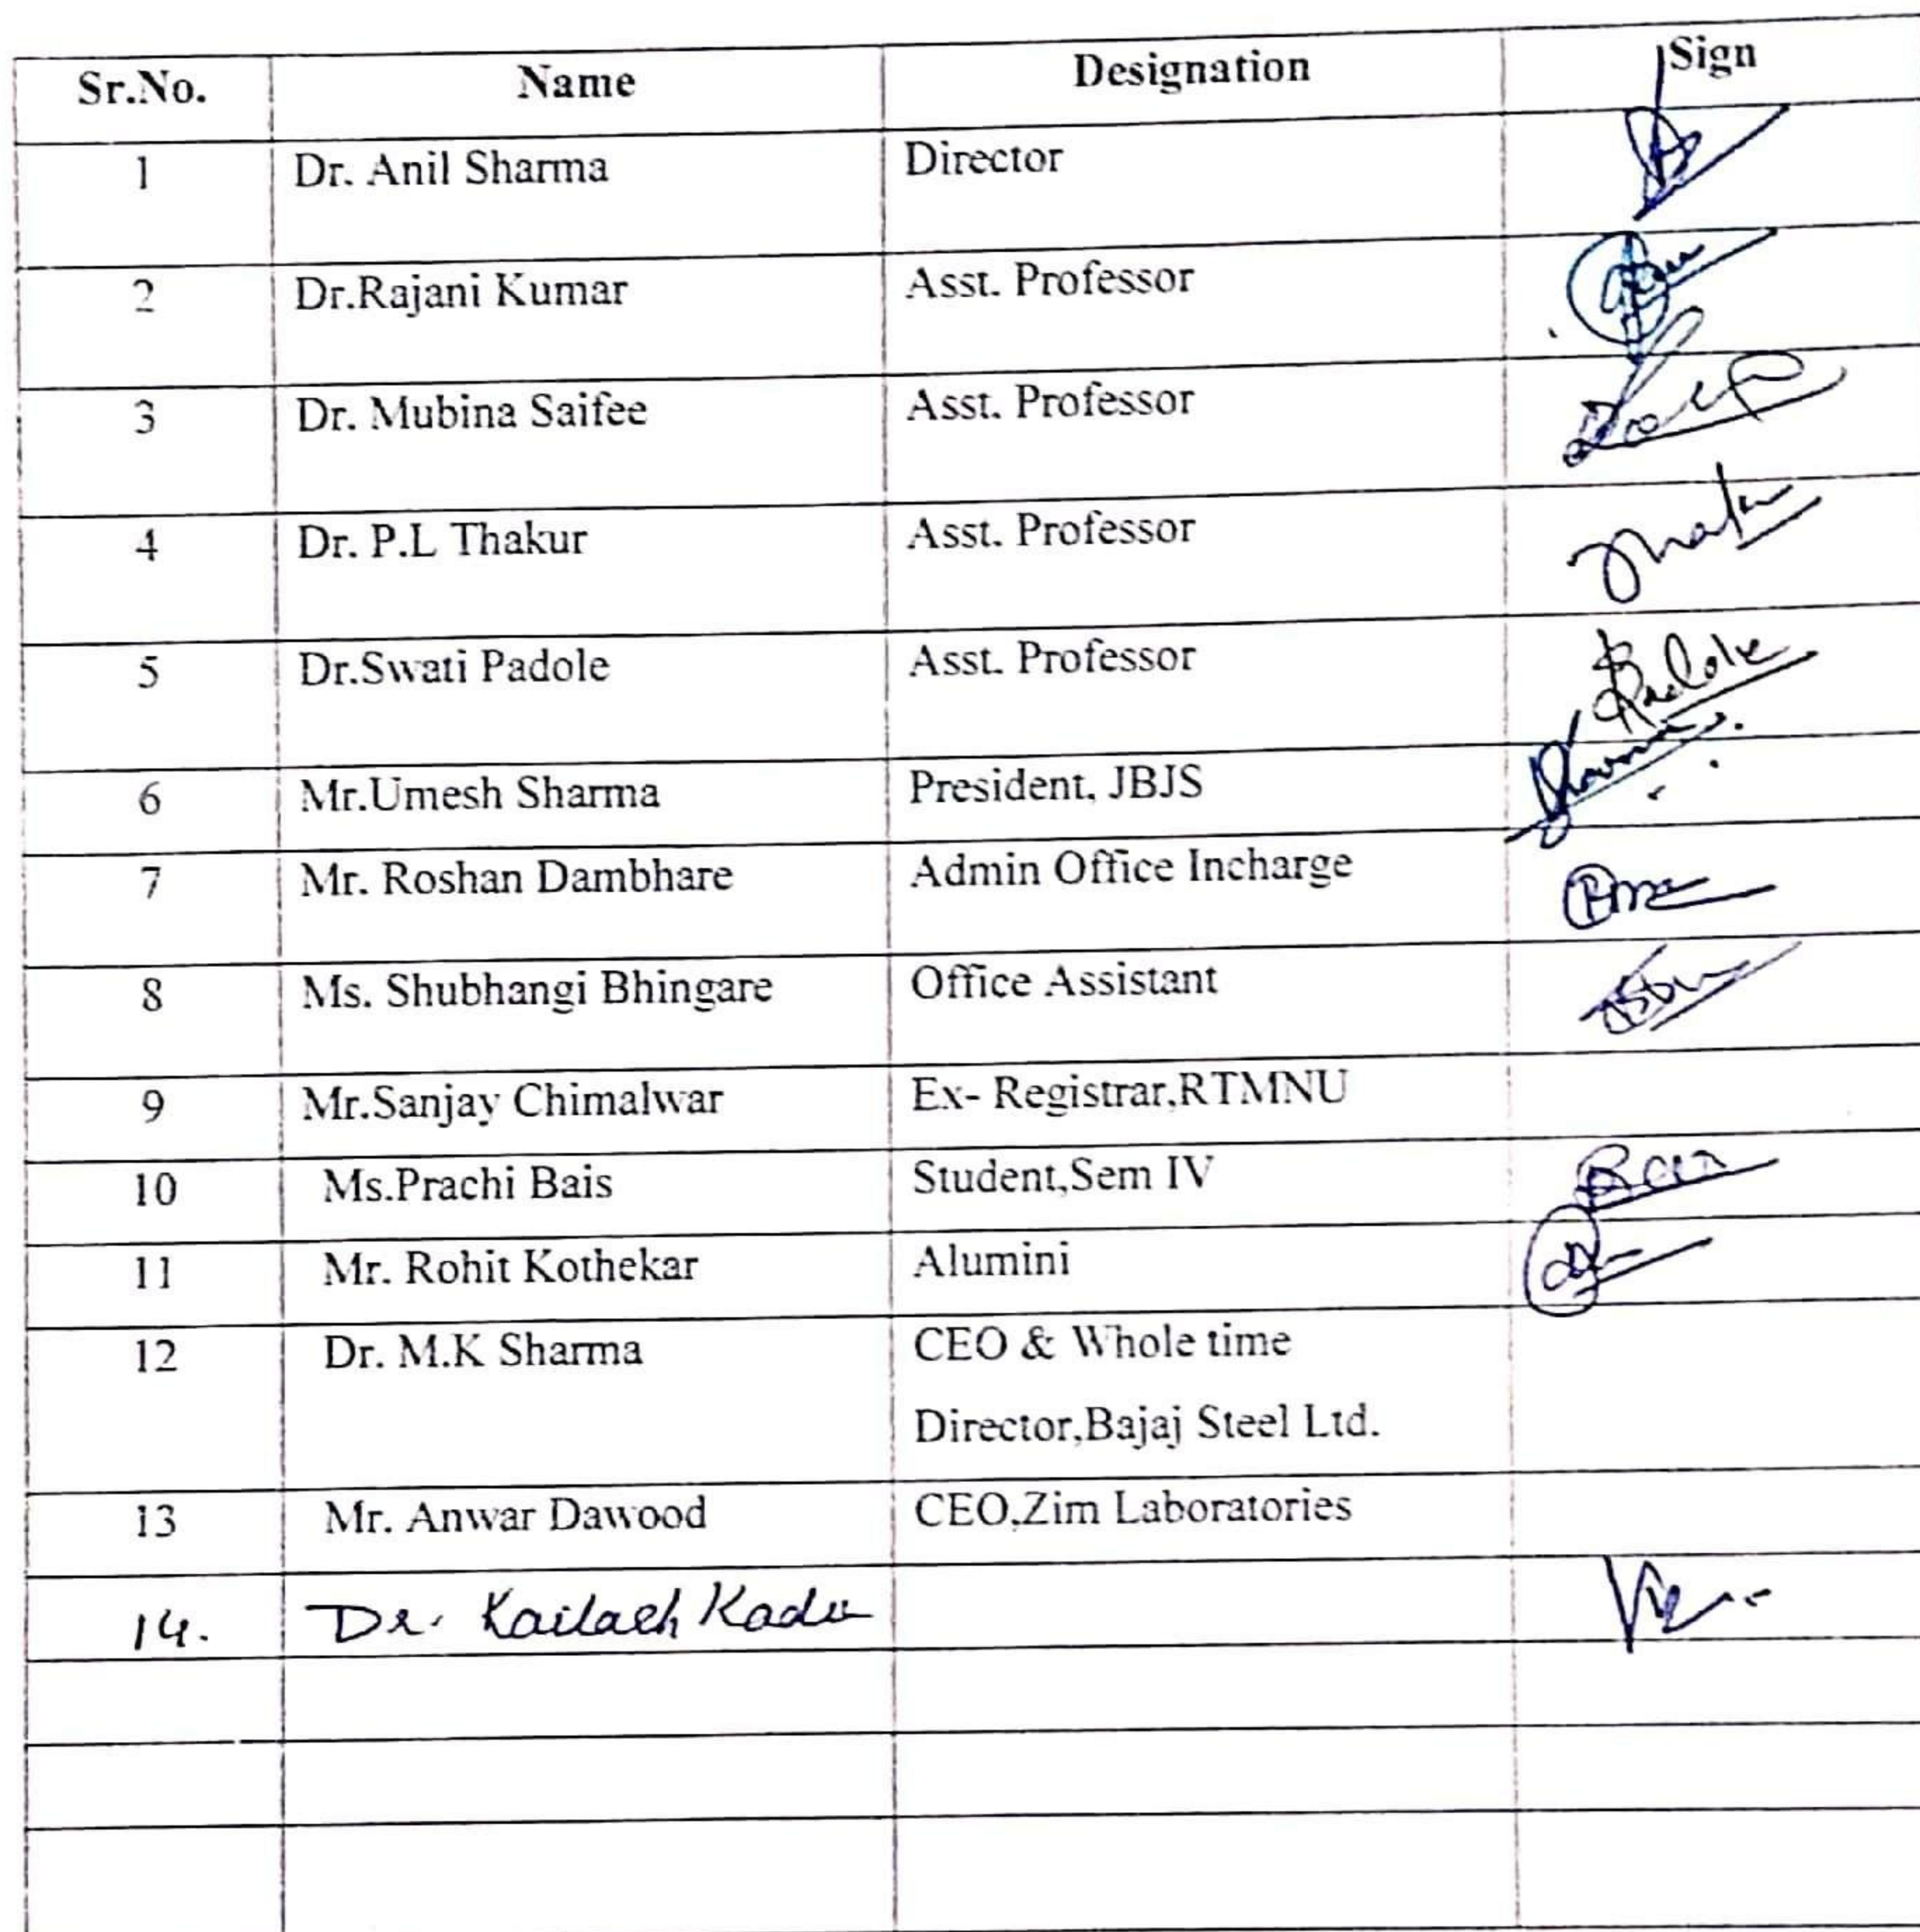 Sr.No. Name Designation Sign
1 Dr. Anil Sharma Director
2 Dr.Rajani Kumar Asst. Professor
3 Dr. Mubina Saifee Asst. Professor
4 Dr. P.L Thakur Asst. Professor
5 Dr.Swati Padole Asst. Professor Padole
6 Mr.Umesh Sharma President, JBJS
7 Mr. Roshan Dambhare Admin Office Incharge
8 Ms. Shubhangi Bhingare Office Assistant
9 Mr.Sanjay Chimalwar Ex- Registrar,RTMNU
10 Ms.Prachi Bais Student,Sem IV
11 Mr. Rohit Kothekar Alumini
12 Dr. M.K Sharma CEO & Whole time
Director,Bajaj Steel Ltd.
13 Mr. Anwar Dawood CEO,Zim Laboratories
14. Dr. Kailash Kadu